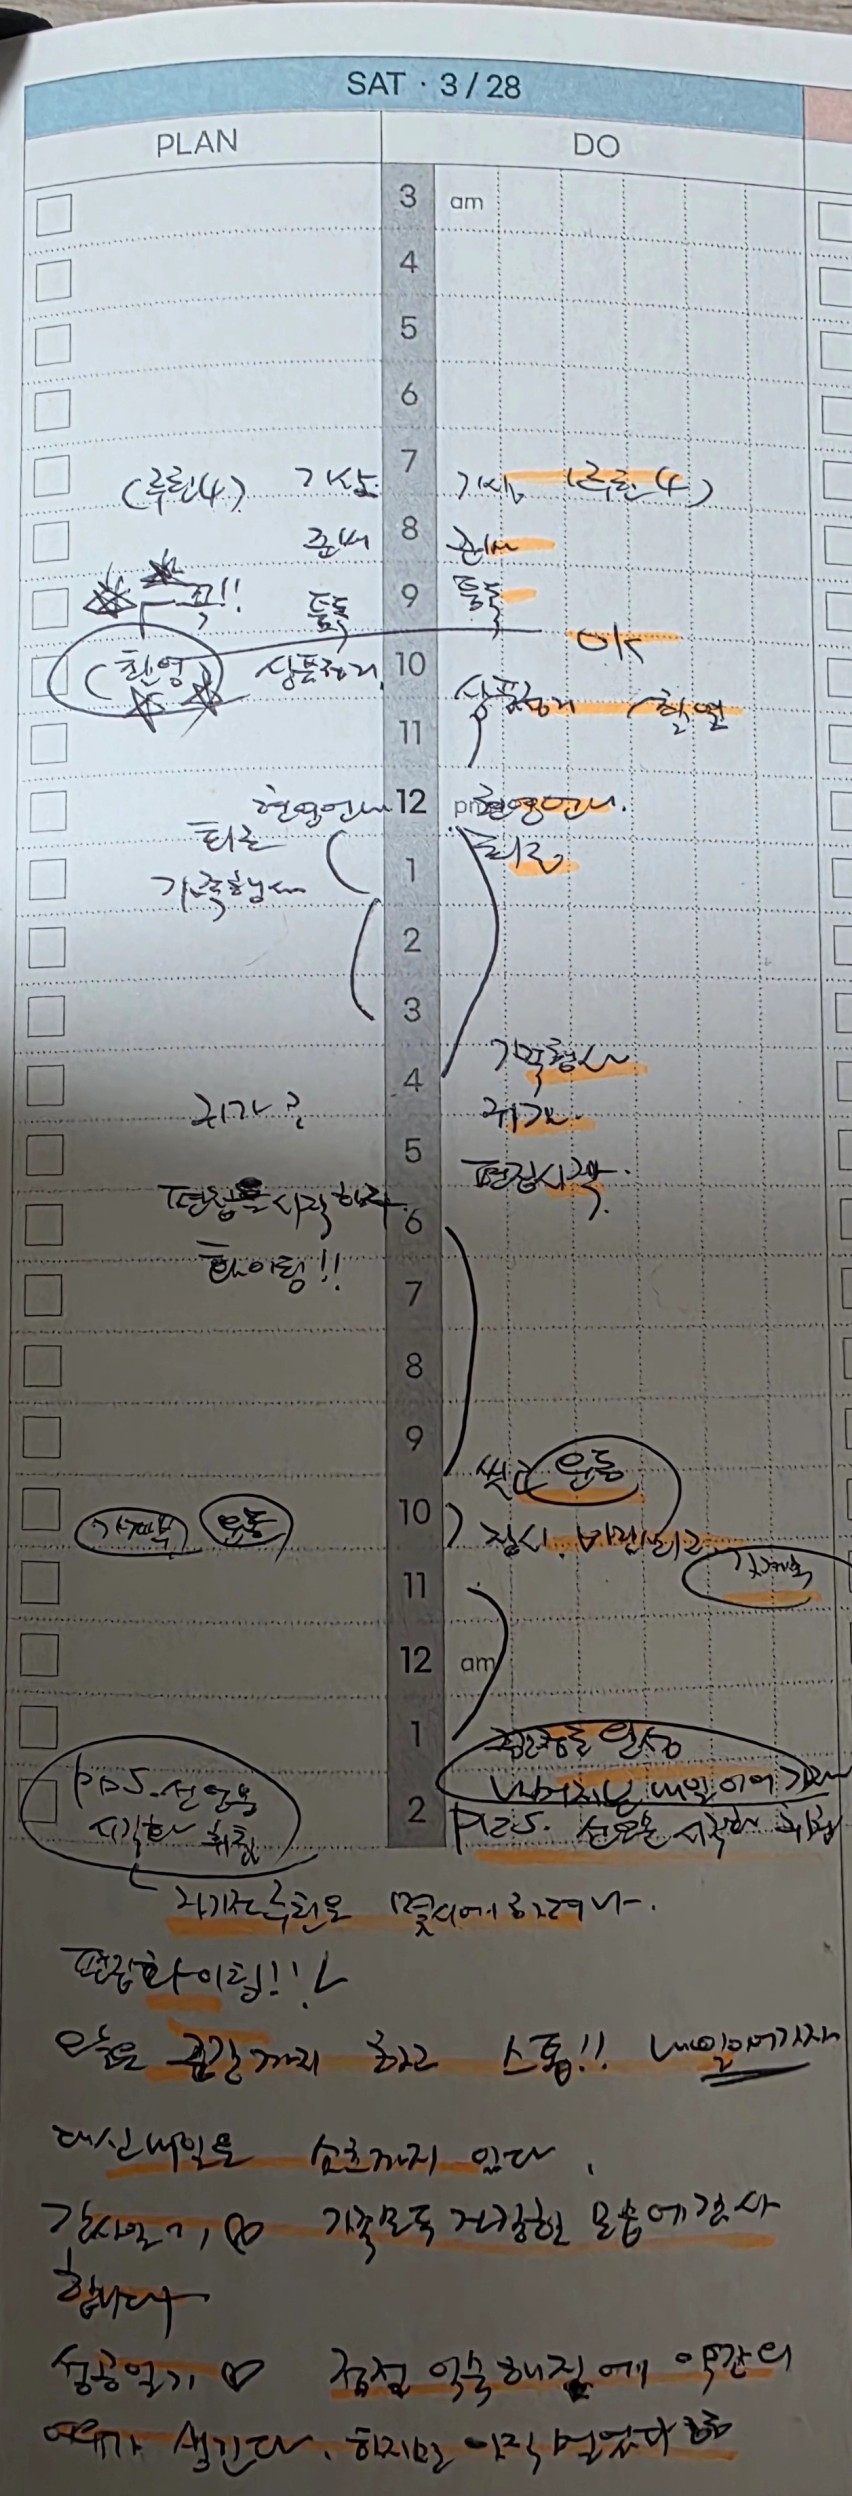 SAT · 3/28
PLAN
DO
3 am
4
5
6
(루틴4) 기상 7 기상 (루틴4)
준비 8 준비
꼭!! 톡톡 9 톡톡
OK
(촬영) 상품정리 10
상품정리 (촬영
11
현영언니 12 pm 현영언니.
퇴근 퇴근
1
가족행사
2
3
가족행사
4
귀가? 귀가
5
편집시작.
편집을 시작하라 6
화이팅!! 7
8
9
씻고 운동
가계부 운동 10
잠시,
가계부
11
12 am
1
나머지는 내일 이어가자
PDS. 선언문
시각화 취침
2
PDS. 선언문 시각화 취침
자기전 루틴은 몇시에 하려나~.
편집화이팅!!
오늘은 까지 하고 스톱!! 내일이어가자
대신 내일은 쇼츠까지 있다.
감사일기, ♡ 가족모두 건강한 모습에 감사
합니다
성공일기 ♡ 점점 익숙해짐에 약간의
여유가 생긴다. 하지만 아직 멀었다